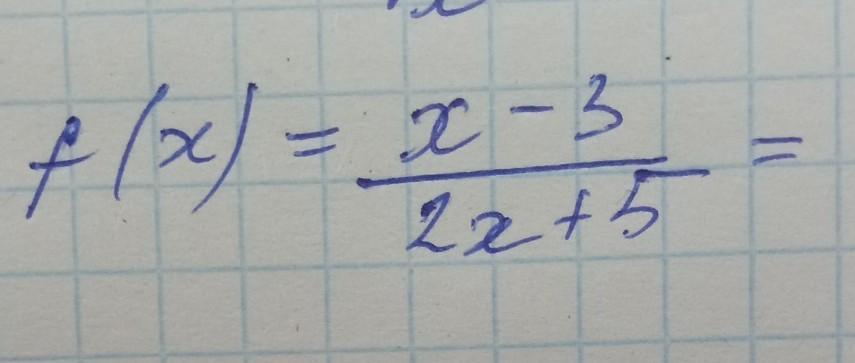 f(x) = \frac{x-3}{2x+5} =